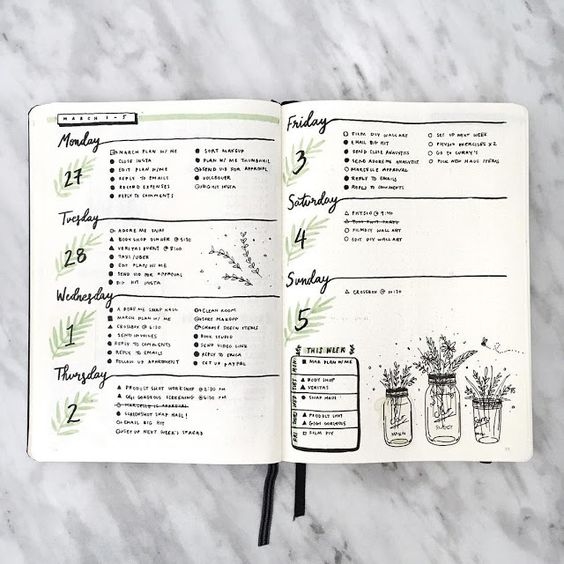 MARCH 1-5
Monday
27
MARCH PLAN W/ ME
CLOSE INSTA
EDIT PLAN W/ ME
REPLY TO EMAILS
RECORD EXPENSES
REPLY TO COMMENTS
SORT MAKEUP
PLAN W/ ME THUMBNAIL
SEND VID FOR APPROVAL
VOICEOVER
BIG HIT INSTA
Tuesday
28
BODY SHOP DINNER @ 5:30
VERITAS EVENT @ 9:30
EDIT PLAN W/ ME
SEND VID FOR APPROVAL
BIG HIT INSTA
Wednesday
1
MARCH PLAN W/ ME
CROSSBOX @ 6:30
SEND INVOICES
REPLY TO COMMENTS
REPLY TO EMAILS
FOLLOW UP APARTMENT
CLEAN ROOM
SORT MAKEUP
CHOOSE DECOR ITEMS
BOOK STUDIO
SEND VIDEO LINK
REPLY TO ERICA
SET UP PAYPAL
Thursday
2
PRODUCT SHOT WORKSHOP @
GIGI GORGEOUS SCREENING @ 6:30 PM
MARCELLE APPROVAL
SCREENSHOT SWAP HAUL!
EMAIL BIG HIT
SET UP NEXT WEEK'S SPREAD
Friday
3
FILM DIY WALL ART
EMAIL BIG HIT
SEND CLIEF ANALYTICS
SEND ADORE ME ANALYTICS
MARCELLE APPROVAL
REPLY TO EMAILS
REPLY TO COMMENTS
SET UP NEXT WEEK
PHYSIO EXERCISES X2
PICK NEW HAUL ITEMS
Saturday
4
PHYSIO @ 9:40
FILM DIY WALL ART
EDIT DIY WALL ART
Sunday
5
CROSSBOX @ 10:30
THIS WEEK
MAR PLAN W/ ME
BODY SHOP
VERITAS
SWAP HAUL
PRODUCT SHOT
GIGI GORGEOUS
FILM DIY